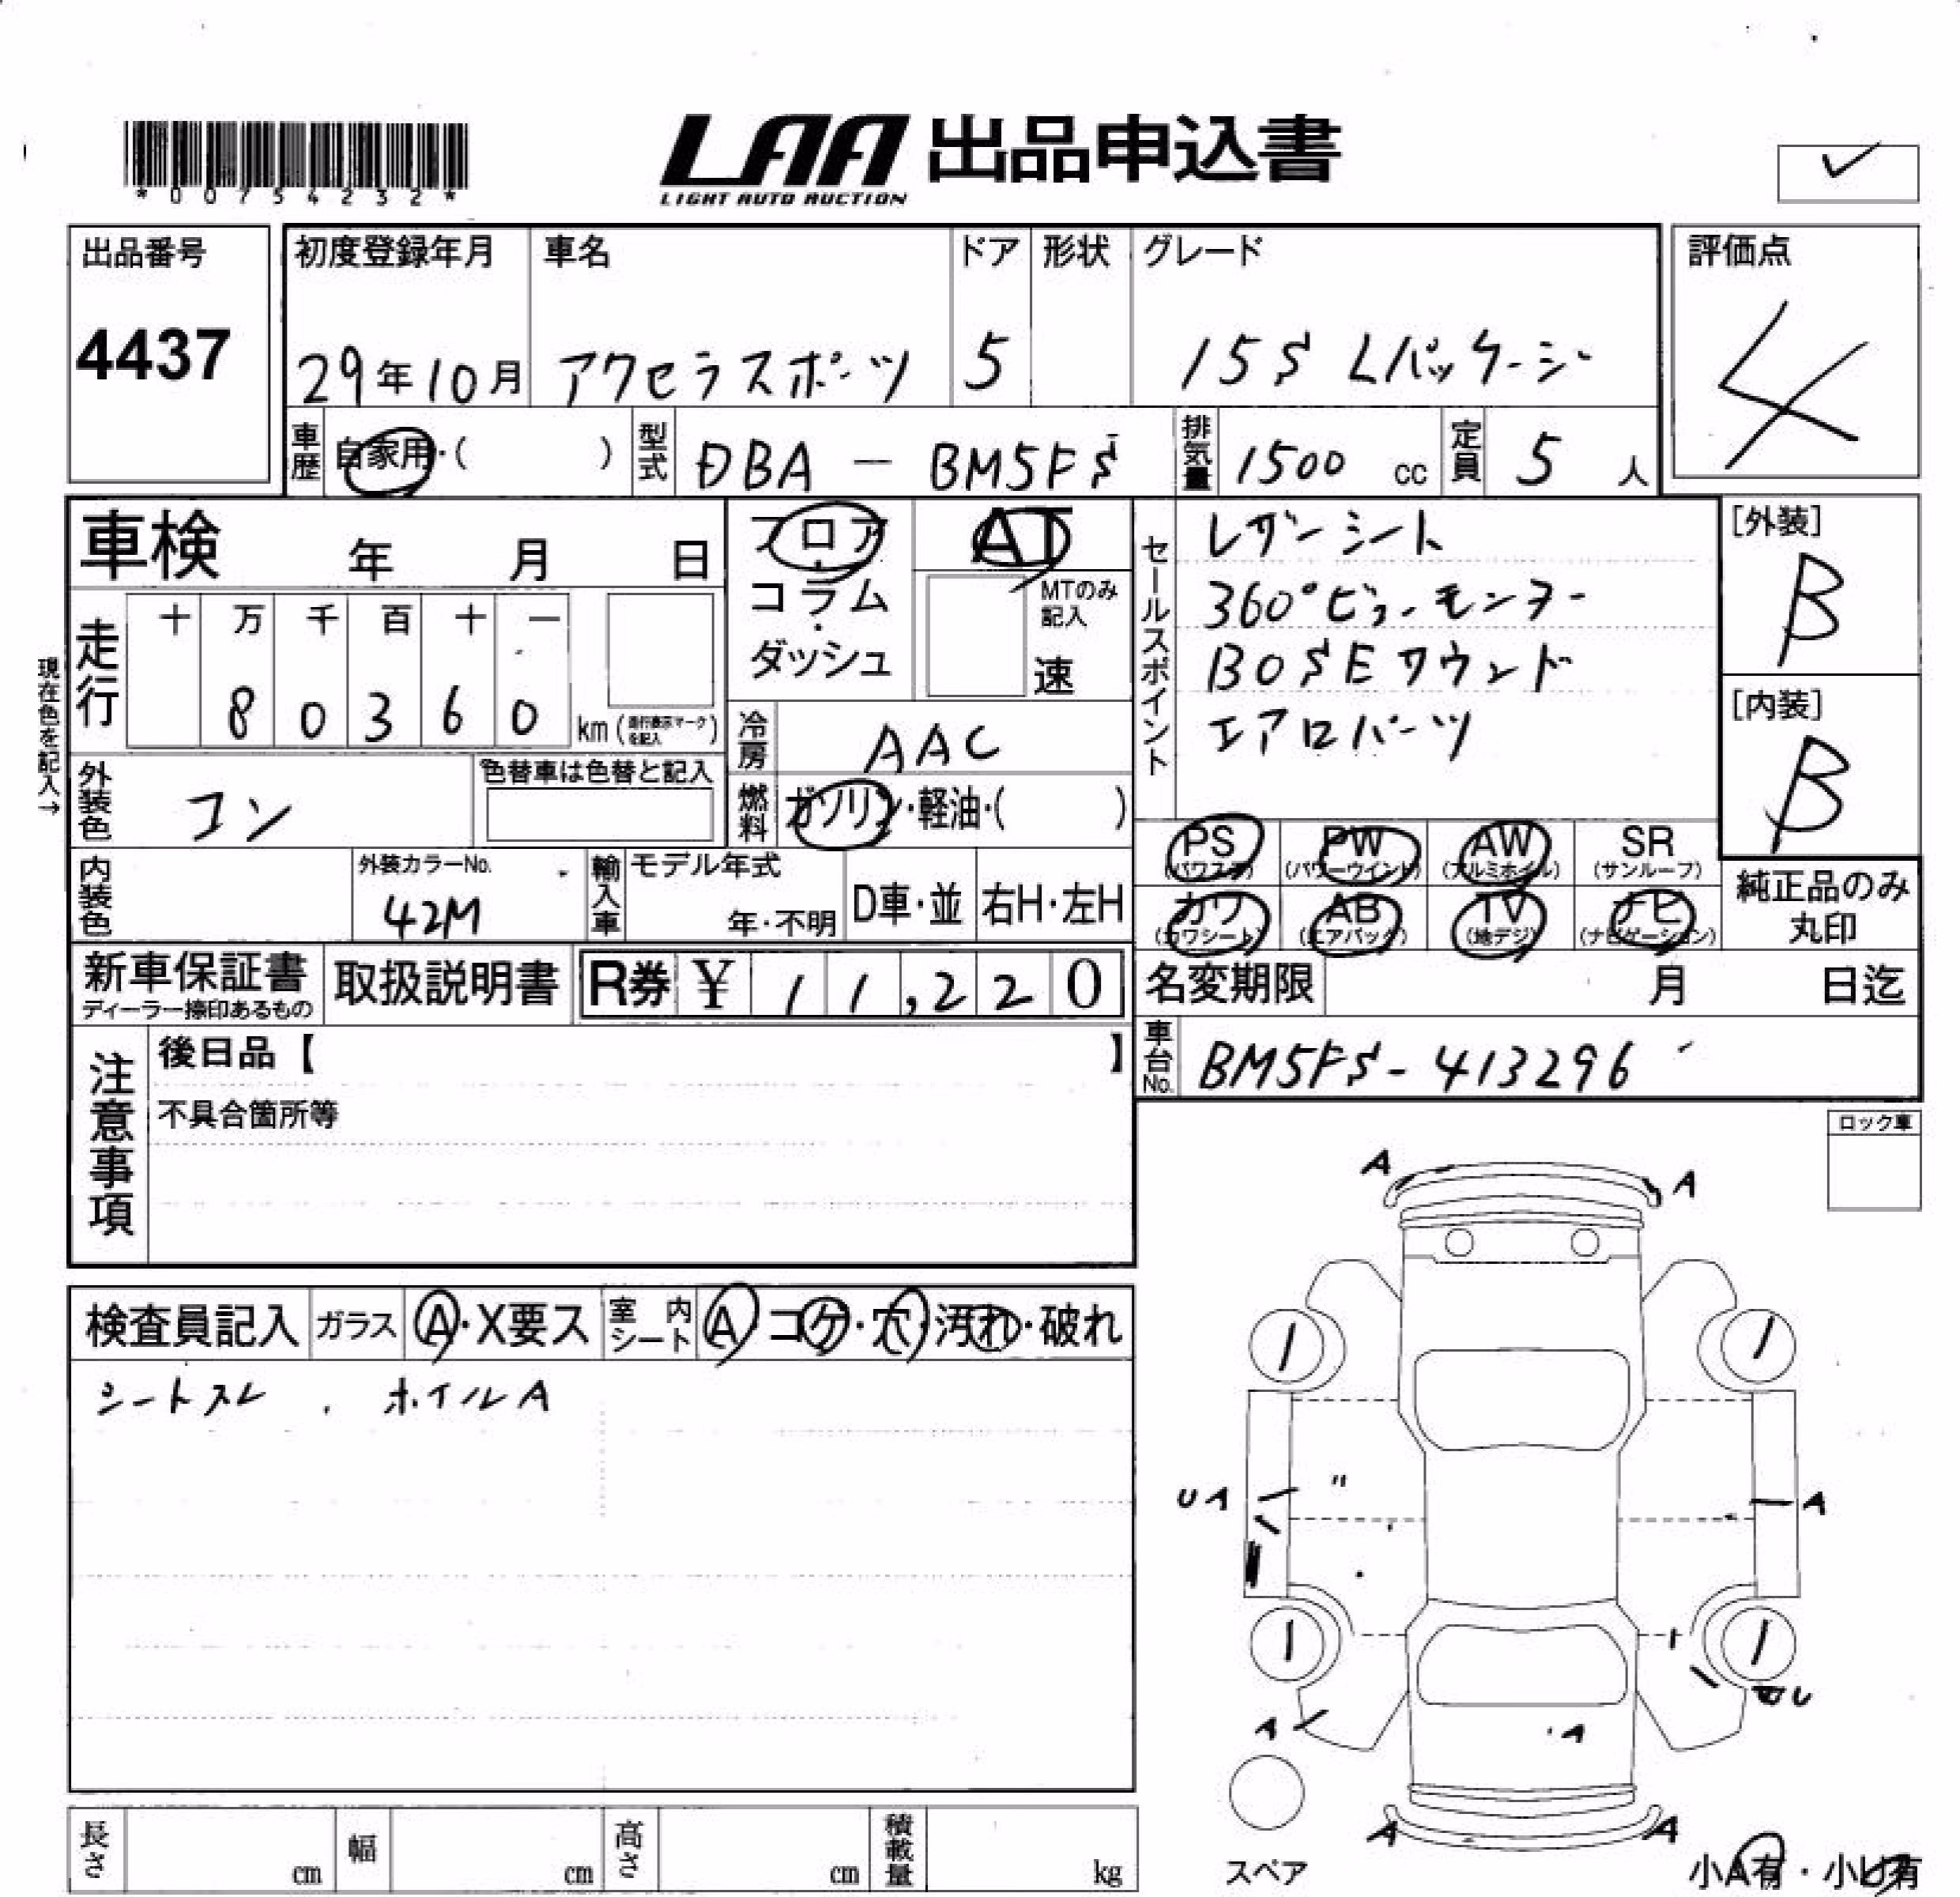 *00754232*
LAA 出品申込書
LIGHT AUTO AUCTION
出品番号
4437
初度登録年月 車名 ドア 形状 グレード
29年10月 アクセラスポーツ 5 15S Lパッケージ
評価点
4
車歴 自家用・( ) 型式 DBA - BM5FS 排気量 1500 cc 定員 5 人
車検 年 月 日
フロア・コラム・ダッシュ
AT
MTのみ記入
速
セールスポイント
レザーシート
360°ビューモンター
BOSEサウンド
エアロパーツ
[外装]
B
[内装]
B
現在色を記入→
走行 十 万 千 百 十 一
8 0 3 6 0 km (走行表示マークを記入)
冷房 AAC
外装色 コン
色替車は色替と記入
燃料 ガソリン・軽油・( )
PS (パワステ) PW (パワーウインド) AW (アルミホイル) SR (サンルーフ)
カワ (カワシート) AB (エアバック) TV (地デジ) ナビ (ナビゲーション)
純正品のみ
丸印
内装色
外装カラーNo.
42M
輸入車 モデル年式
年・不明 D車・並 右H・左H
新車保証書
ディーラー捺印あるもの
取扱説明書
R券 ¥ 11,220
名変期限 月 日迄
車台No. BM5FS-413296
注意事項
後日品【 】
不具合箇所等
ロック車
検査員記入 ガラス A・X要ス 室内シート A コゲ・穴・汚れ・破れ
シートスレ . ホイルA
A A
UA 〃 A
A A U
A A
スペア
小A有・小U有
長さ cm 幅 cm 高さ cm 積載量 kg